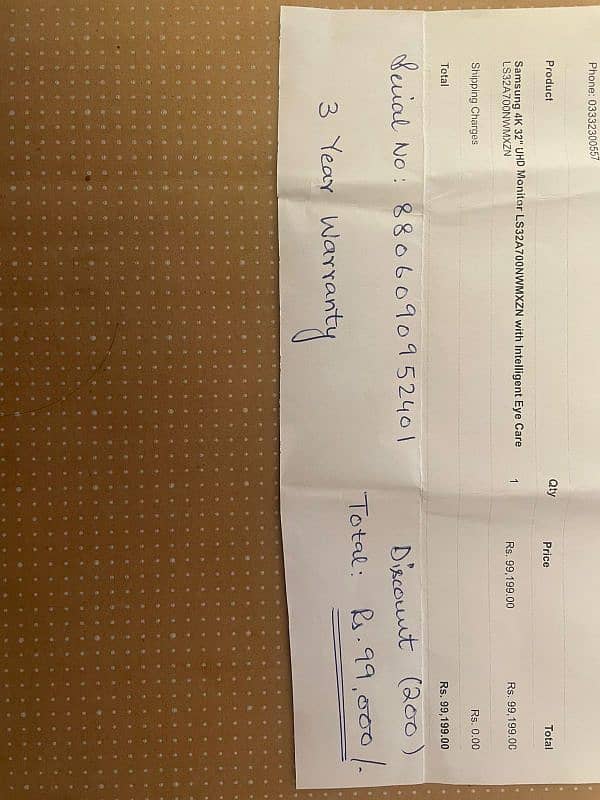 Phone: 03332300557
Product Qty Price Total
Samsung 4K 32" UHD Monitor LS32A700NWMXZN with Intelligent Eye Care 1 Rs. 99,199.00 Rs. 99,199.00
LS32A700NWMXZN
Shipping Charges Rs. 0.00
Total Rs. 99,199.00
Serial No: 8806090952401 Discount (200)
3 Year Warranty Total: Rs. 99,000/-